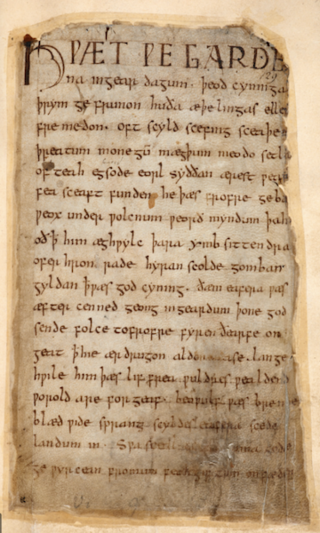 HǷÆT ǷE GARDE
na ingear dagum · þeod cyninga
þrym ge frunon huða æþelingas elle
fre medon · oft scyld scefing sceaþe
þreatum monegū mægþum meodo setl
of teah egsode eorl syððan ærest ƿear
fea sceaft funden he þæs frofre geba
ƿeox under ƿolcnum ƿeorð myndum þah
oð ꝥ him æghƿylc þara ymb sittendra
ofer hron rade hyran scolde gomban
gyldan þ ƿæs god cyning · ðæm eafera ƿæs
æfter cenned geong in geardum þone god
sende folce tofrofre fyren ðearfe on
geat ꝥ hie ær drugon aldor ase · lange
hƿile him þæs lif frea ƿuldres ƿealdend
ƿorold are for geaf · beoƿulf ƿæs breme
blæd ƿide sprang scyldes eafera scede
landum in · Sƿa
ge ƿyrcean fromum feoh giftum on fæder